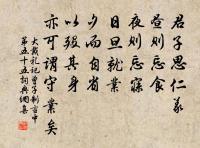 君子思仁義
晝則忘食
夜則忘寐
日旦就業
夕而自省
以歿其身
亦可謂守業矣
大戴礼記曾子制言中
第五十五詞典網集